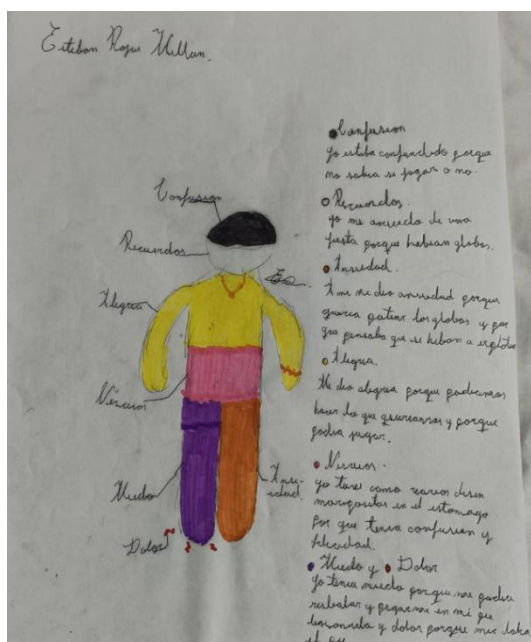 Esteban Rojas Millan.
Confusion
Recuerdos
Alegria
Nérvios
Miedo
Ansi-
edad.
Dolor
Confusion
Yo estaba confundido porque
no sabia si jugar o no.
Recuerdos.
yo me acuerdo de una
fiesta porque habian globos.
Ansiedad.
A mi me dio ansiedad porque
queria patiar los globos y por
que pensaba que se hiban a
Alegria.
Me dio alegria porque podiamos
hacer lo que queriamos y porque
podia jugar.
Nervios.
yo tuve como nervios disen
maripositas en el estomago
por que tenia confusion y
felicidad.
Miedo y Dolor
Yo tenia miedo porque me podia
resbalar y pegarme en mi pie
y dolor porque me
el pie